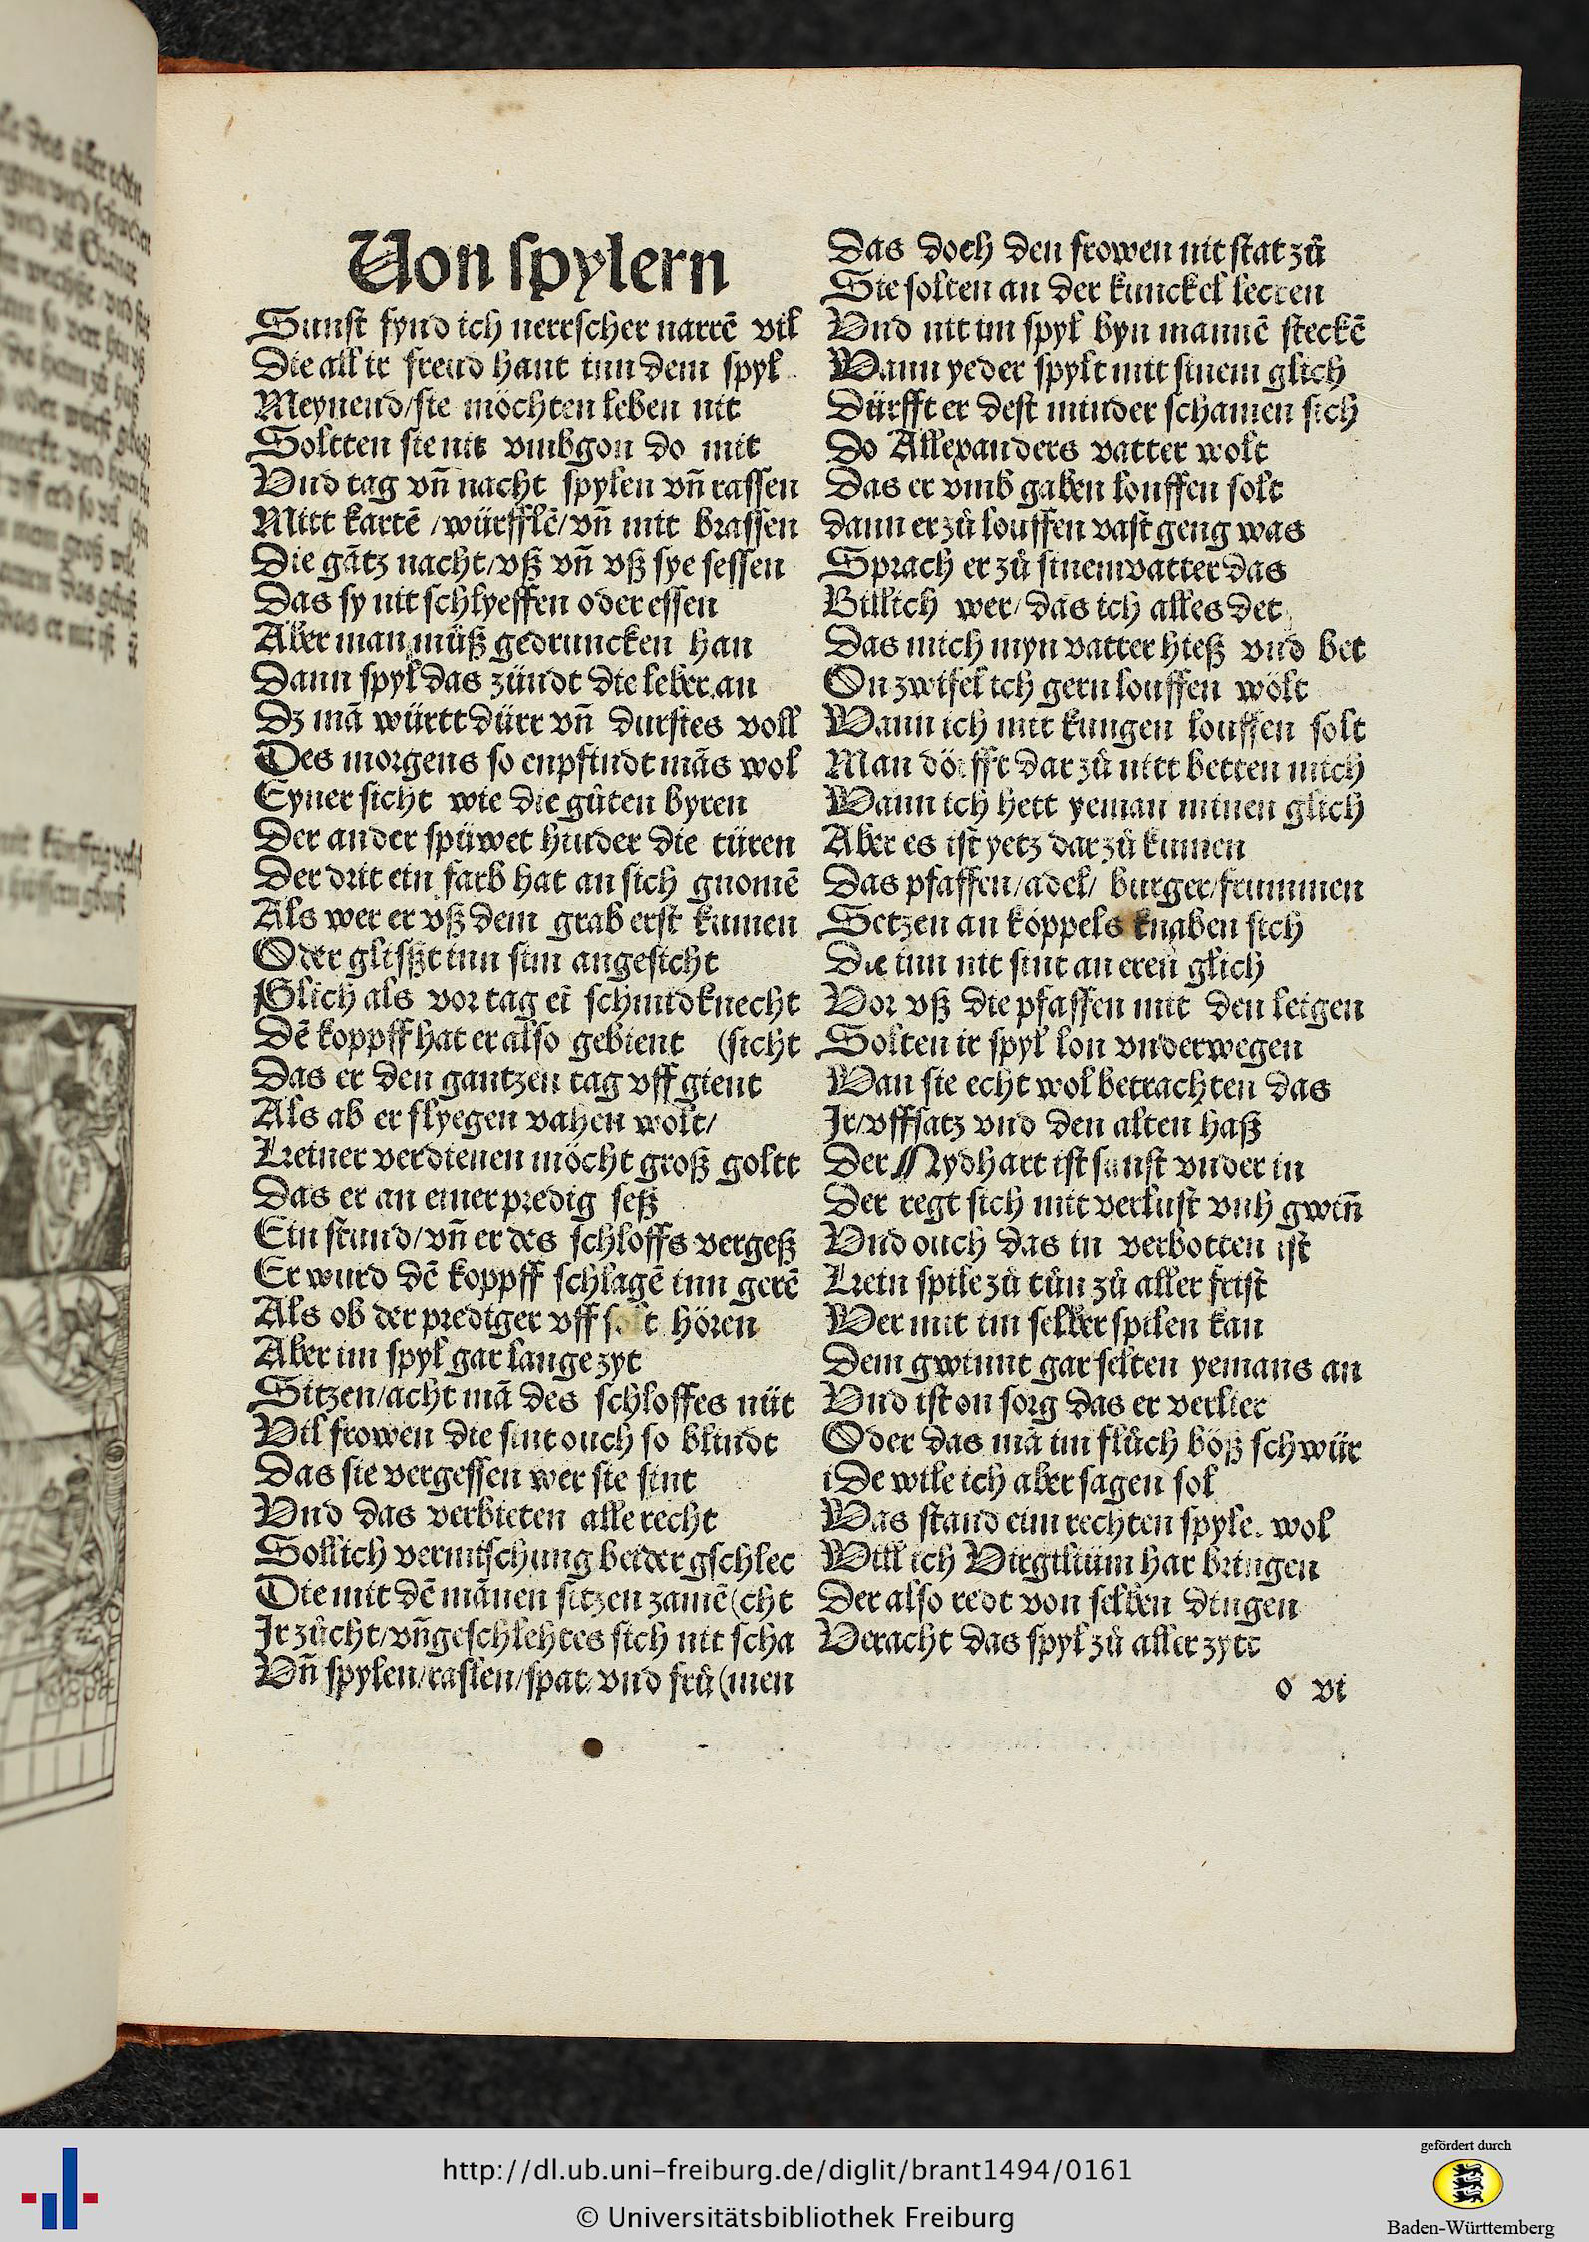 Von spylern
Sunst fynd ich nerrscher narrē vil
Die all ir freud hant inn dem spyl
Meynend/sie möchten leben nit
Soltten sie nit vmbgon do mit
Vnd tag vn̄ nacht spylen vn̄ rassen
Mitt kartē /würfflē/vn̄ mit brassen
Die gātz nacht/vß vn̄ vß sye sessen
Das sy nit schlyeffen oder essen
Aber man müß gedruncken han
Dann spyl das zündt die leber an
Dz mā württ dürr vn̄ durstes voll
Des morgens so enpfindt mās wol
Eyner sicht wie die gůten byren
Der ander spüwet hinder die türen
Der drit ein farb hat an sich gnomē
Als wer er vß dem grab erst kumen
Oder glißt inn sim angesicht
Glich als vor tag eī schmidknecht
Dē koppff hat er also gebient (sicht
Das er den gantzen tag vff gient
Als ab er flyegen vahen wolt/
Keiner verdienen möcht groß goltt
Das er an einer predig seß
Ein stund/vn̄ er des schloffs vergeß
Er wurd dē koppff schlagē inn gerē
Als ob der prediger vff solt hören
Aber im spyl gar lange zyt
Sitzen/acht mā des schloffes nüt
Vil frowen die sint ouch so blindt
Das sie vergessen wer sie sint
Vnd das verbieten alle recht
Sollich vermischung beider gschlec
Die mit dē mānen sitzen zamē(cht
Ir zůcht/vn̄geschlehtes sich nit scha
Vn̄ spylen/raslen/spat vnd frů(men
Das doch den frowen nit stat zů
Sie solten an der kunckel lecken
Vnd nit im spyl byn mannē steckē
Wann yeder spylt mit sinem glich
Dürfft er dest minder schamen sich
Do Allexanders vatter wolt
Das er vmb gaben louffen solt
dann er zů louffen vast geng was
Sprach er zů sinem vatter das
Billich wer/das ich alles det
Das mich myn vatter hieß vnd bet
On zwifel ich gern louffen wölt
Wann ich mit kungen louffen solt
Man dörfft dar zů nitt betten mich
Wann ich hett yeman minen glich
Aber es ist yetz dar zů kumen
Das pfaffen/adel/ burger/frummen
Setzen an köppels knaben sich
Die inn nit sint an eren glich
Vor vß die pfaffen mit den leigen
Solten ir spyl lon vnderwegen
Wan sie echt wol betrachten das
Ir/vffsatz vnd den alten haß
Der Nydhart ist sunst vnder in
Der regt sich mit verlust vnh gwin̄
Vnd ouch das in verbotten ist
Kein spile zů tůn zů aller frist
Wer mit im selber spilen kan
Dem gwinnt gar selten yemans an
Vnd ist on sorg das er verlier
Oder das mā im flůch böß schwür
iDe wile ich aber sagen sol
Was stand eim rechten spyle. wol
Will ich Virgilium har bringen
Der also redt von selben dingen
Veracht das spyl zů aller zytt
o vi
http://dl.ub.uni-freiburg.de/diglit/brant1494/0161
© Universitätsbibliothek Freiburg
gefördert durch
Baden-Württemberg